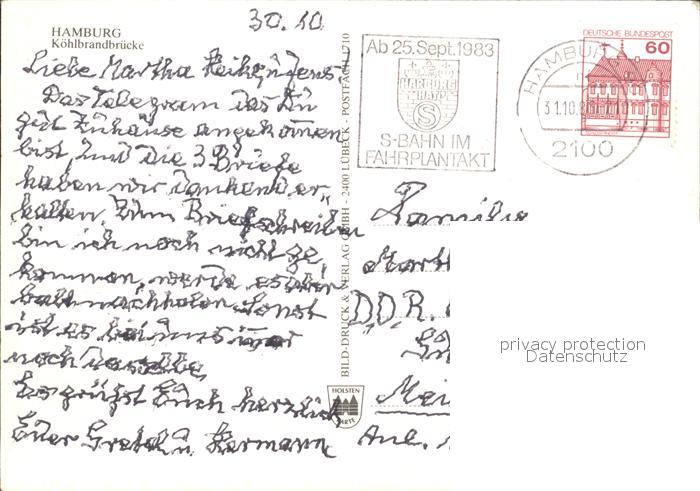 30.10
HAMBURG
Köhlbrandbrücke
Liebe Martha
Das Telegram das Du
gut Zuhause angekommen
bist, und die 3 Briefe
haben wir dankend er-
halten. Zum Briefschreiben
bin ich noch nicht ge-
kommen, werde es aber
bald nachholen. Sonst
ist es bei uns immer
noch dasselbe,
Es grüßt Euch herzlich
Euer Gretel u. Hermann
BILD-DRUCK & VERLAG GMBH - 2400 LÜBECK - POSTFACH 1710
HOLSTEN
KARTE
Ab 25.Sept.1983
HARBURG
S
S-BAHN IM
FAHRPLANTAKT
HAMBURG
2100
DEUTSCHE BUNDESPOST
60
Familie
Marth
DDR.
Mei
privacy protection
Datenschutz